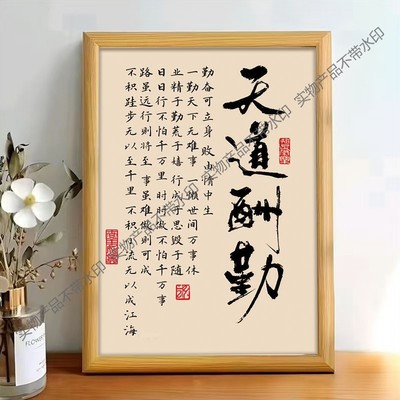 天道酬勤
勤奋可立身 败由惰中生
一勤天下无难事 一懒世间万事休
业精于勤荒于嬉 行成于思毁于随
日日行不怕千万里 时时做不怕千万事
路虽远行则将至 事虽难做则可成
不积跬步无以至千里 不积 流无以成江海
实物产品不带水印
实物产品不带水印
实物产品不带水印
实物产品不带水印
实物产品不带水印